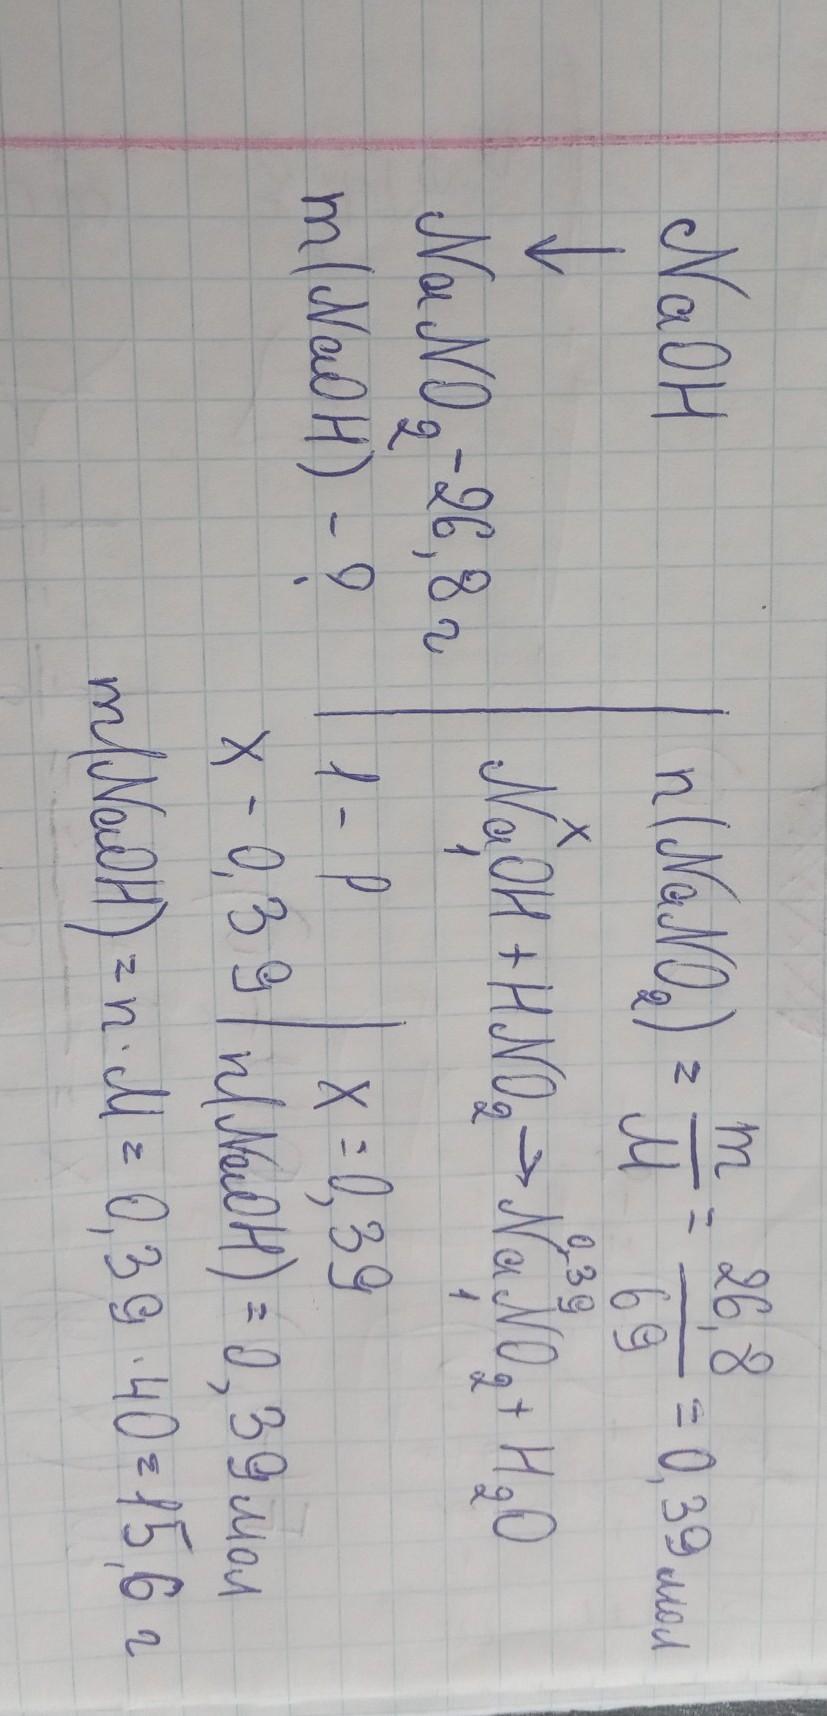 NaOH
↓
NaNO₂ - 26,8 г
m(NaOH) - ?
n(NaNO₂) = m/M = 26,8/69 = 0,39 мол
x 0,39
NaOH + HNO₂ → NaNO₂ + H₂O
1 1
1 - 1
x - 0,39 | x = 0,39
n(NaOH) = 0,39 мол
m(NaOH) = n · M = 0,39 · 40 = 15,6 г